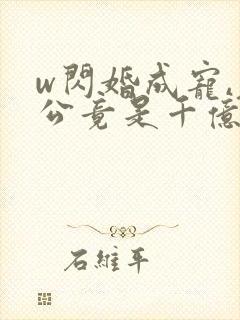 w閃婚成寵,
公竟是千億
石維平